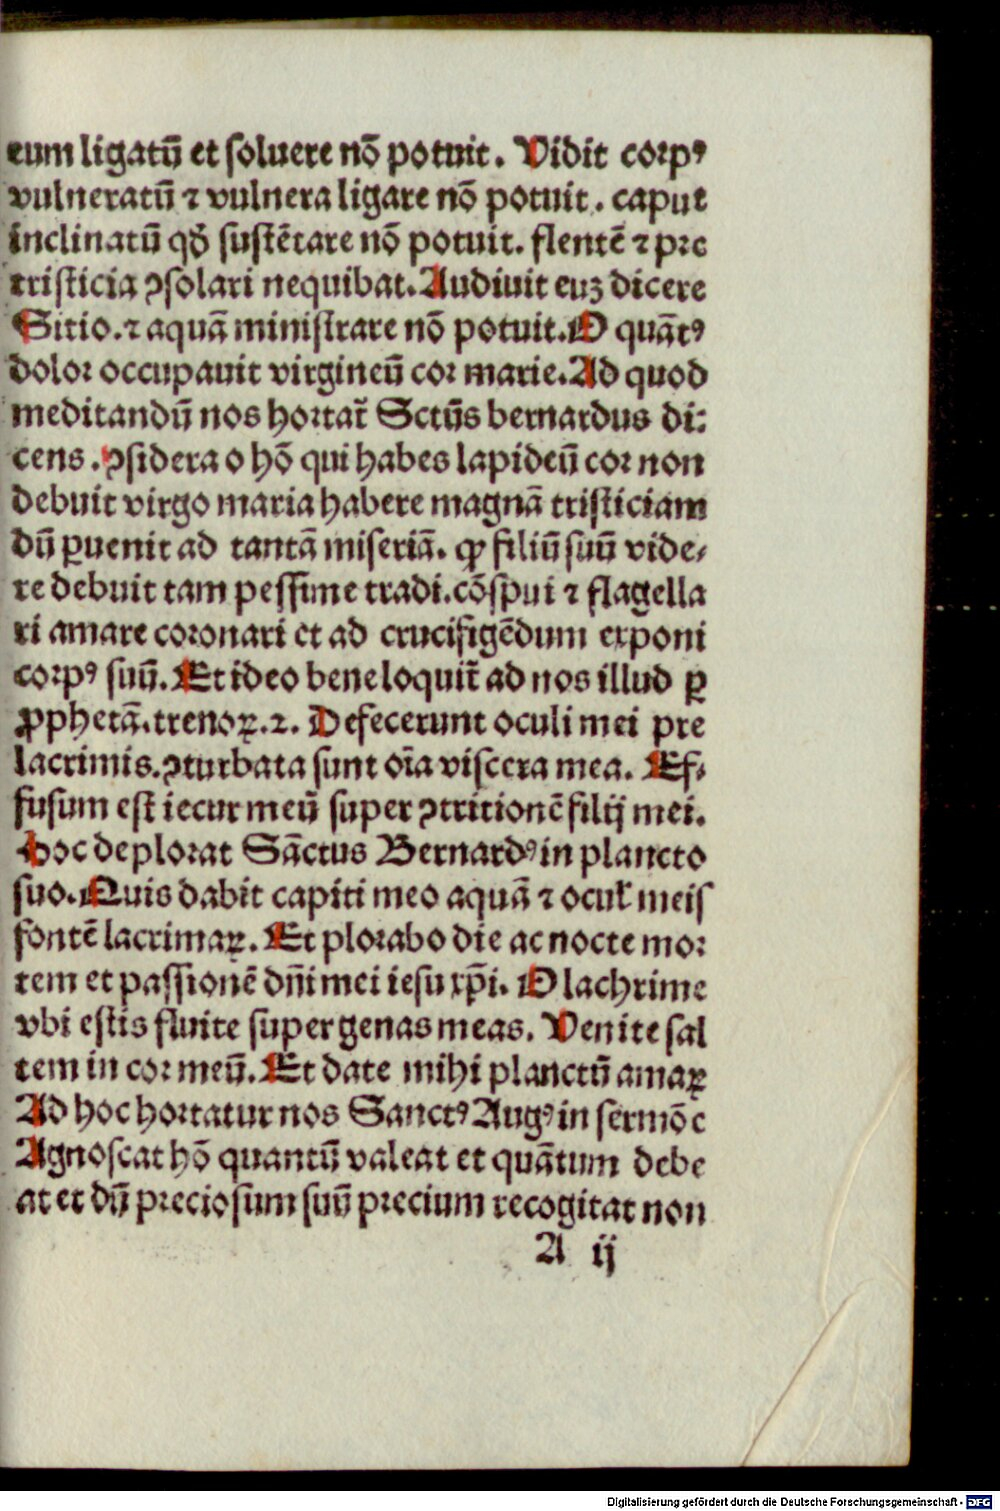 eum ligatū et ſoluere nō potuit. Vidit corpꝰ
vulneratū ⁊ vulnera ligare nō potuit. caput
inclinatū qd̛ ſuſtētare nō potuit. flentē ⁊ pre
triſticia ꝯſolari nequibat. Audiuit euꝫ dicere
Sitio. ⁊ aquā miniſtrare nō potuit. O quātꝰ
dolor occupauit virgineū cor marie. Ad quod
meditandū nos hortat᷑ Sctūs bernardus di:
cens. ꝯſidera o hō qui habes lapideū cor non
debuit virgo maria habere magnā triſticiam
dū ꝑuenit ad tantā miſeriā. ꝙ filiū ſuū vide⸗
re debuit tam peſſime tradi. cōſpui ⁊ flagella
ri amare coronari et ad crucifigēdum exponi
corpꝰ ſuū. Et ideo bene loquit᷑ ad nos illud ꝑ
ꝓphetā. trenoꝝ. 2. Defecerunt oculi mei pre
lacrimis. ꝯturbata ſunt oīa viſcera mea. Ef⸗
fuſum eſt iecur meū ſuper ꝯtritionē filij mei.
Hoc deplorat Sāctus Bernardꝰ in plancto
ſuo. Quis dabit capiti meo aquā ⁊ ocul̛ meiſ
fontē lacrimaꝝ. Et plorabo die ac nocte mor
tem et paſſionē dn̄i mei ieſu xp̄i. O lachrime
vbi eſtis fluite ſuper genas meas. Venite ſal
tem in cor meū. Et date mihi planctū amaꝝ
Ad hoc hortatur nos Sanctꝰ Augꝰ in ſermōe
Agnoſcat hō quantū valeat et quātum debe
at et dū precioſum ſuū precium recogitat non
A ij
Digitalisierung gefördert durch die Deutsche Forschungsgemeinschaft - DFG